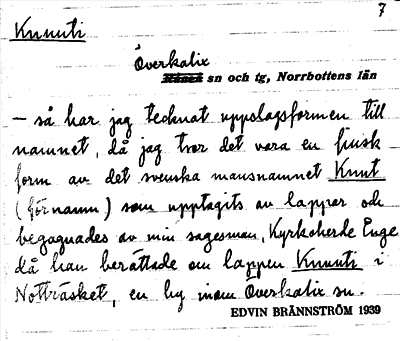 7
Knuuti
Överkalix
Råneå sn och tg, Norrbottens län
— så har jag tecknat uppslagsformen till
namnet, då jag tror det vara en finsk
form av det svenska mansnamnet Knut
(förnamn) som upptagits av lappar och
begagnades av min sagesman, Kyrkoherde Ånge
då han berättade om lappen Knuuti i
Notträsket, en by inom Överkalix sn.
EDVIN BRÄNNSTRÖM 1939